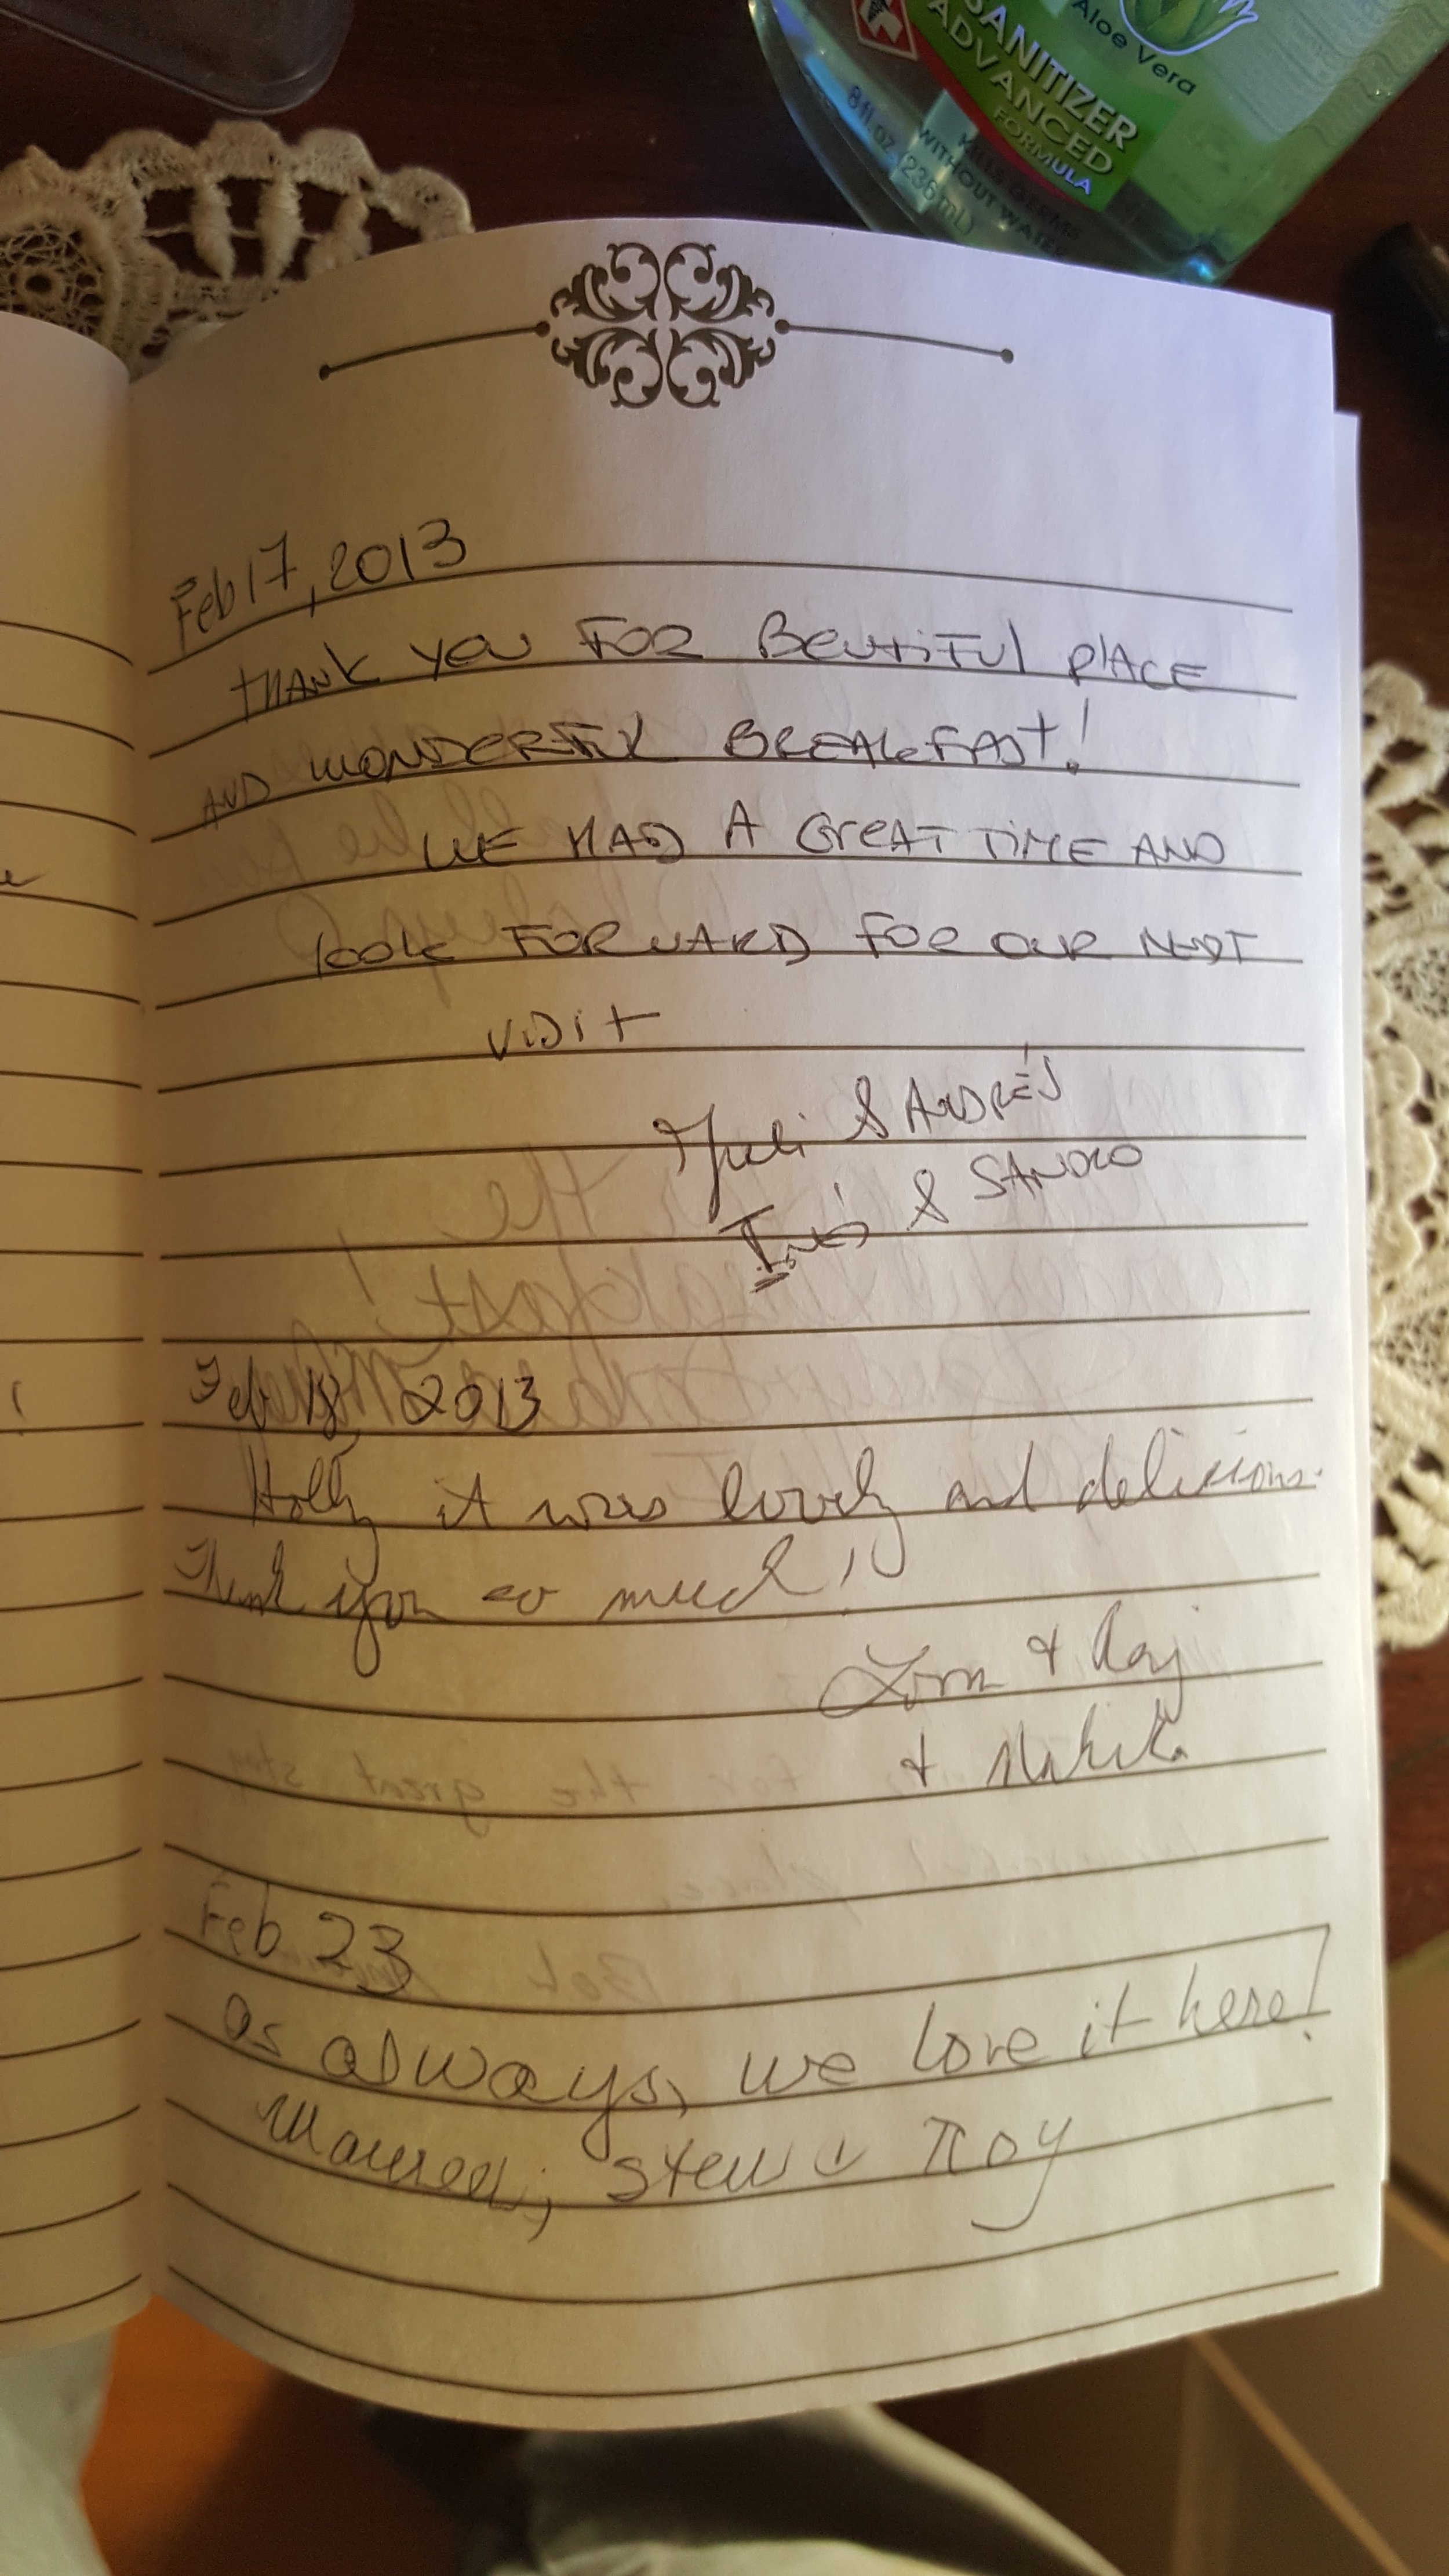 Aloe Vera
SANITIZER
ADVANCED
FORMULA
KILLS GERMS
WITHOUT WATER
8 fl oz (236mL)
Feb 17, 2013
THANK you FOR BeutiFul PlACE
AND WONDERFUL BREAKFAST!
WE HAD A GreAT TiME AND
look FORWARD FOR OUR NEXT
VISIT
& ANDRÉS
Inés & SANDRO
Feb 18, 2013
Holly it was lovely and delicious.
Thank you so much!!
Lorn & Raj
&
Feb 23
as always, we love it here!
Maureen, Stew & Troy